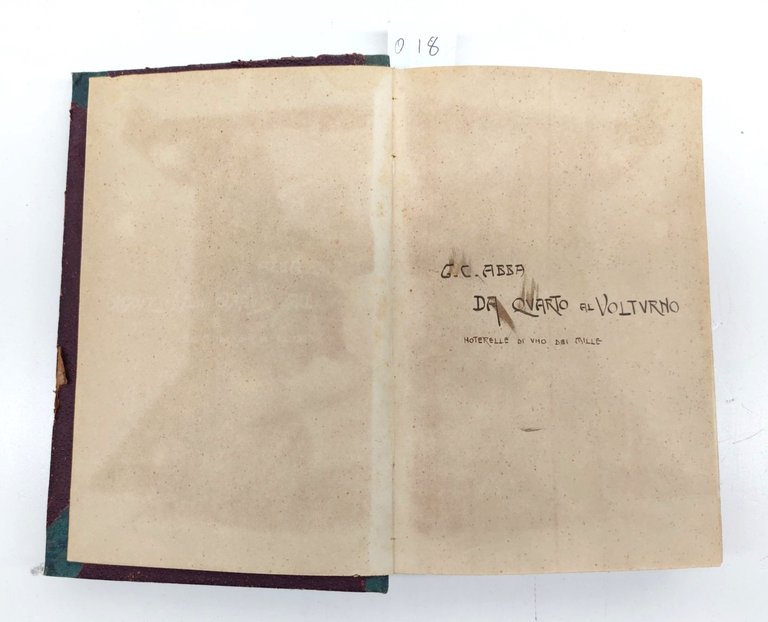 018
G. C. ABBA
DA QVARTO AL VOLTVRNO
NOTERELLE DI VNO DEI MILLE